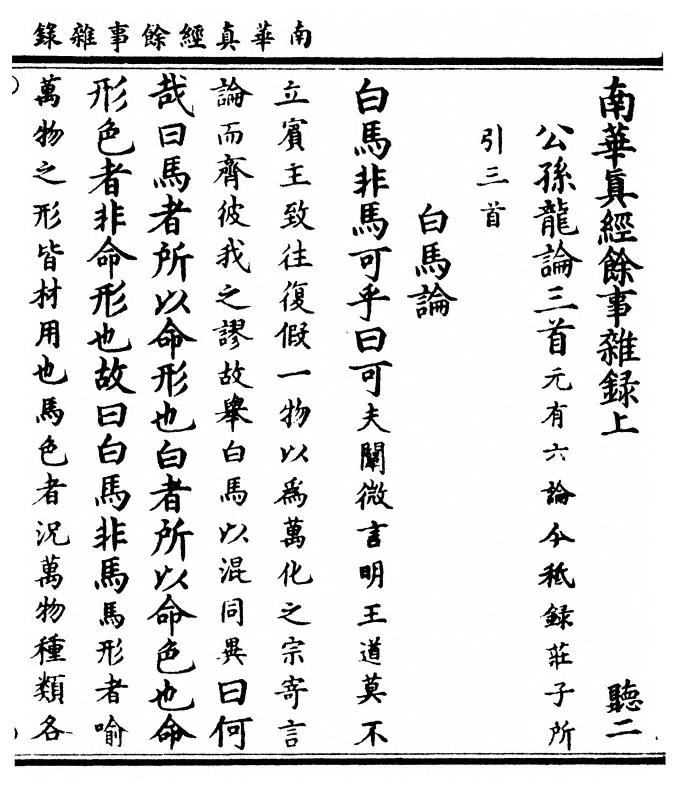 南華真經餘事雜錄
南華真經餘事雜録上 聽二
公孫龍論三首元有六論今秖録莊子所
引三首
白馬論
白馬非馬可乎曰可夫闡微言明王道莫不
立賓主致往復假一物以為萬化之宗寄言
論而齊彼我之謬故舉白馬以混同異曰何
哉曰馬者所以命形也白者所以命色也命
形色者非命形也故曰白馬非馬馬形者喻
萬物之形皆材用也馬色者況萬物種類各